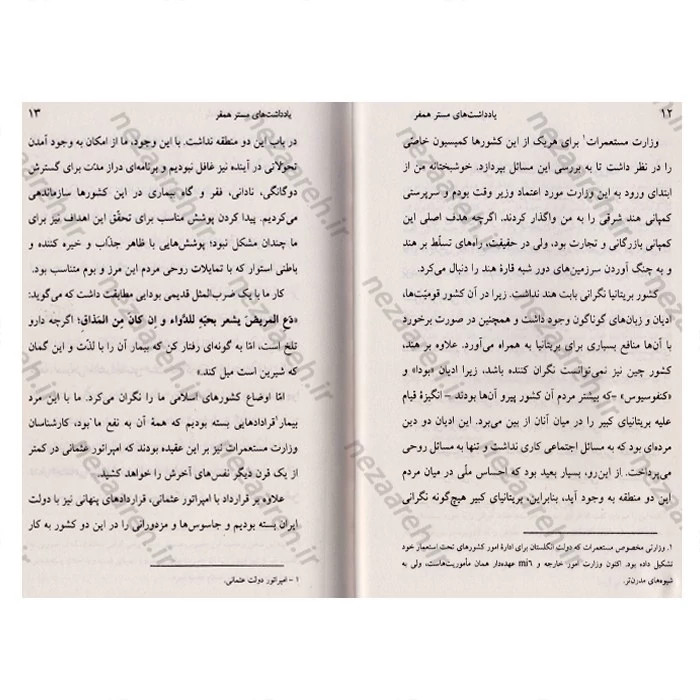 ۱۲
یادداشت‌های مستر همفر
وزارت مستعمرات۱ برای هریک از این کشورها کمیسیون خاصّی
را در نظر داشت تا به بررسی این مسائل بپردازد. خوشبختانه من از
ابتدای ورود به این وزارت مورد اعتماد وزیر وقت بودم و سرپرستی
کمپانی هند شرقی را به من واگذار کردند. اگرچه هدف اصلی این
کمپانی بازرگانی و تجارت بود، ولی در حقیقت، راه‌های تسلّط بر هند
و به چنگ آوردن سرزمین‌های دور شبه قارهٔ هند را دنبال می‌کرد.
کشور بریتانیا نگرانی بابت هند نداشت. زیرا در آن کشور قومیّت‌ها،
ادیان و زبان‌های گوناگون وجود داشت و همچنین در صورت برخورد
با آن‌ها منافع بسیاری برای بریتانیا به همراه می‌آورد. علاوه بر هند،
کشور چین نیز نمی‌توانست نگران کننده باشد، زیرا ادیان «بودا» و
«کنفوسیوس» –که بیشتر مردم آن کشور پیرو آن‌ها بودند– انگیزهٔ قیام
علیه بریتانیای کبیر را در میان آنان از بین می‌برد. این ادیان دو دین
مرده‌ای بود که به مسائل اجتماعی کاری نداشت و تنها به مسائل روحی
می‌پرداخت. از این‌رو، بسیار بعید بود که احساس ملّی در میان مردم
این دو منطقه به وجود آید، بنابراین، بریتانیای کبیر هیچ‌گونه نگرانی
۱. وزارتی مخصوص مستعمرات که دولت انگلستان برای ادارهٔ امور کشورهای تحت استعمار خود
تشکیل داده بود. اکنون وزارت امور خارجه و mi۶ عهده‌دار همان مأموریت‌هاست، ولی به
شیوه‌های مدرن‌تر.
یادداشت‌های مستر همفر
۱۳
در باب این دو منطقه نداشت. با این وجود، ما از امکان به وجود آمدن
تحولاتی در آینده نیز غافل نبودیم و برنامه‌ای دراز مدّت برای گسترش
دوگانگی، نادانی، فقر و گاه بیماری در این کشورها سازماندهی
می‌کردیم. پیدا کردن پوشش مناسب برای تحقّق این اهداف نیز برای
ما چندان مشکل نبود؛ پوشش‌هایی با ظاهر جذّاب و خیره کننده و
باطنی استوار که با تمایلات روحی مردم این مرز و بوم متناسب بود.
کار ما با یک ضرب‌المثل قدیمی بودایی مطابقت داشت که می‌گوید:
«دَعِ المریضَ یشعر بحبّه للدَّواء و إن کانَ مِن المذاق؛ اگرچه دارو
تلخ است، امّا به گونه‌ای رفتار کن که بیمار آن را با لذّت و این گمان
که شیرین است میل کند.»
امّا اوضاع کشورهای اسلامی ما را نگران می‌کرد. ما با این مرد
بیمار۱ قراردادهایی بسته بودیم که همهٔ آن به نفع ما بود، کارشناسان
وزارت مستعمرات نیز بر این عقیده بودند که امپراتور عثمانی در کمتر
از یک قرن دیگر نفس‌های آخرش را خواهد کشید.
علاوه بر قرارداد با امپراتور عثمانی، قراردادهای پنهانی نیز با دولت
ایران بسته بودیم و جاسوس‌ها و مزدورانی را در این دو کشور به کار
۱ – امپراتور دولت عثمانی.
nezaareh.ir